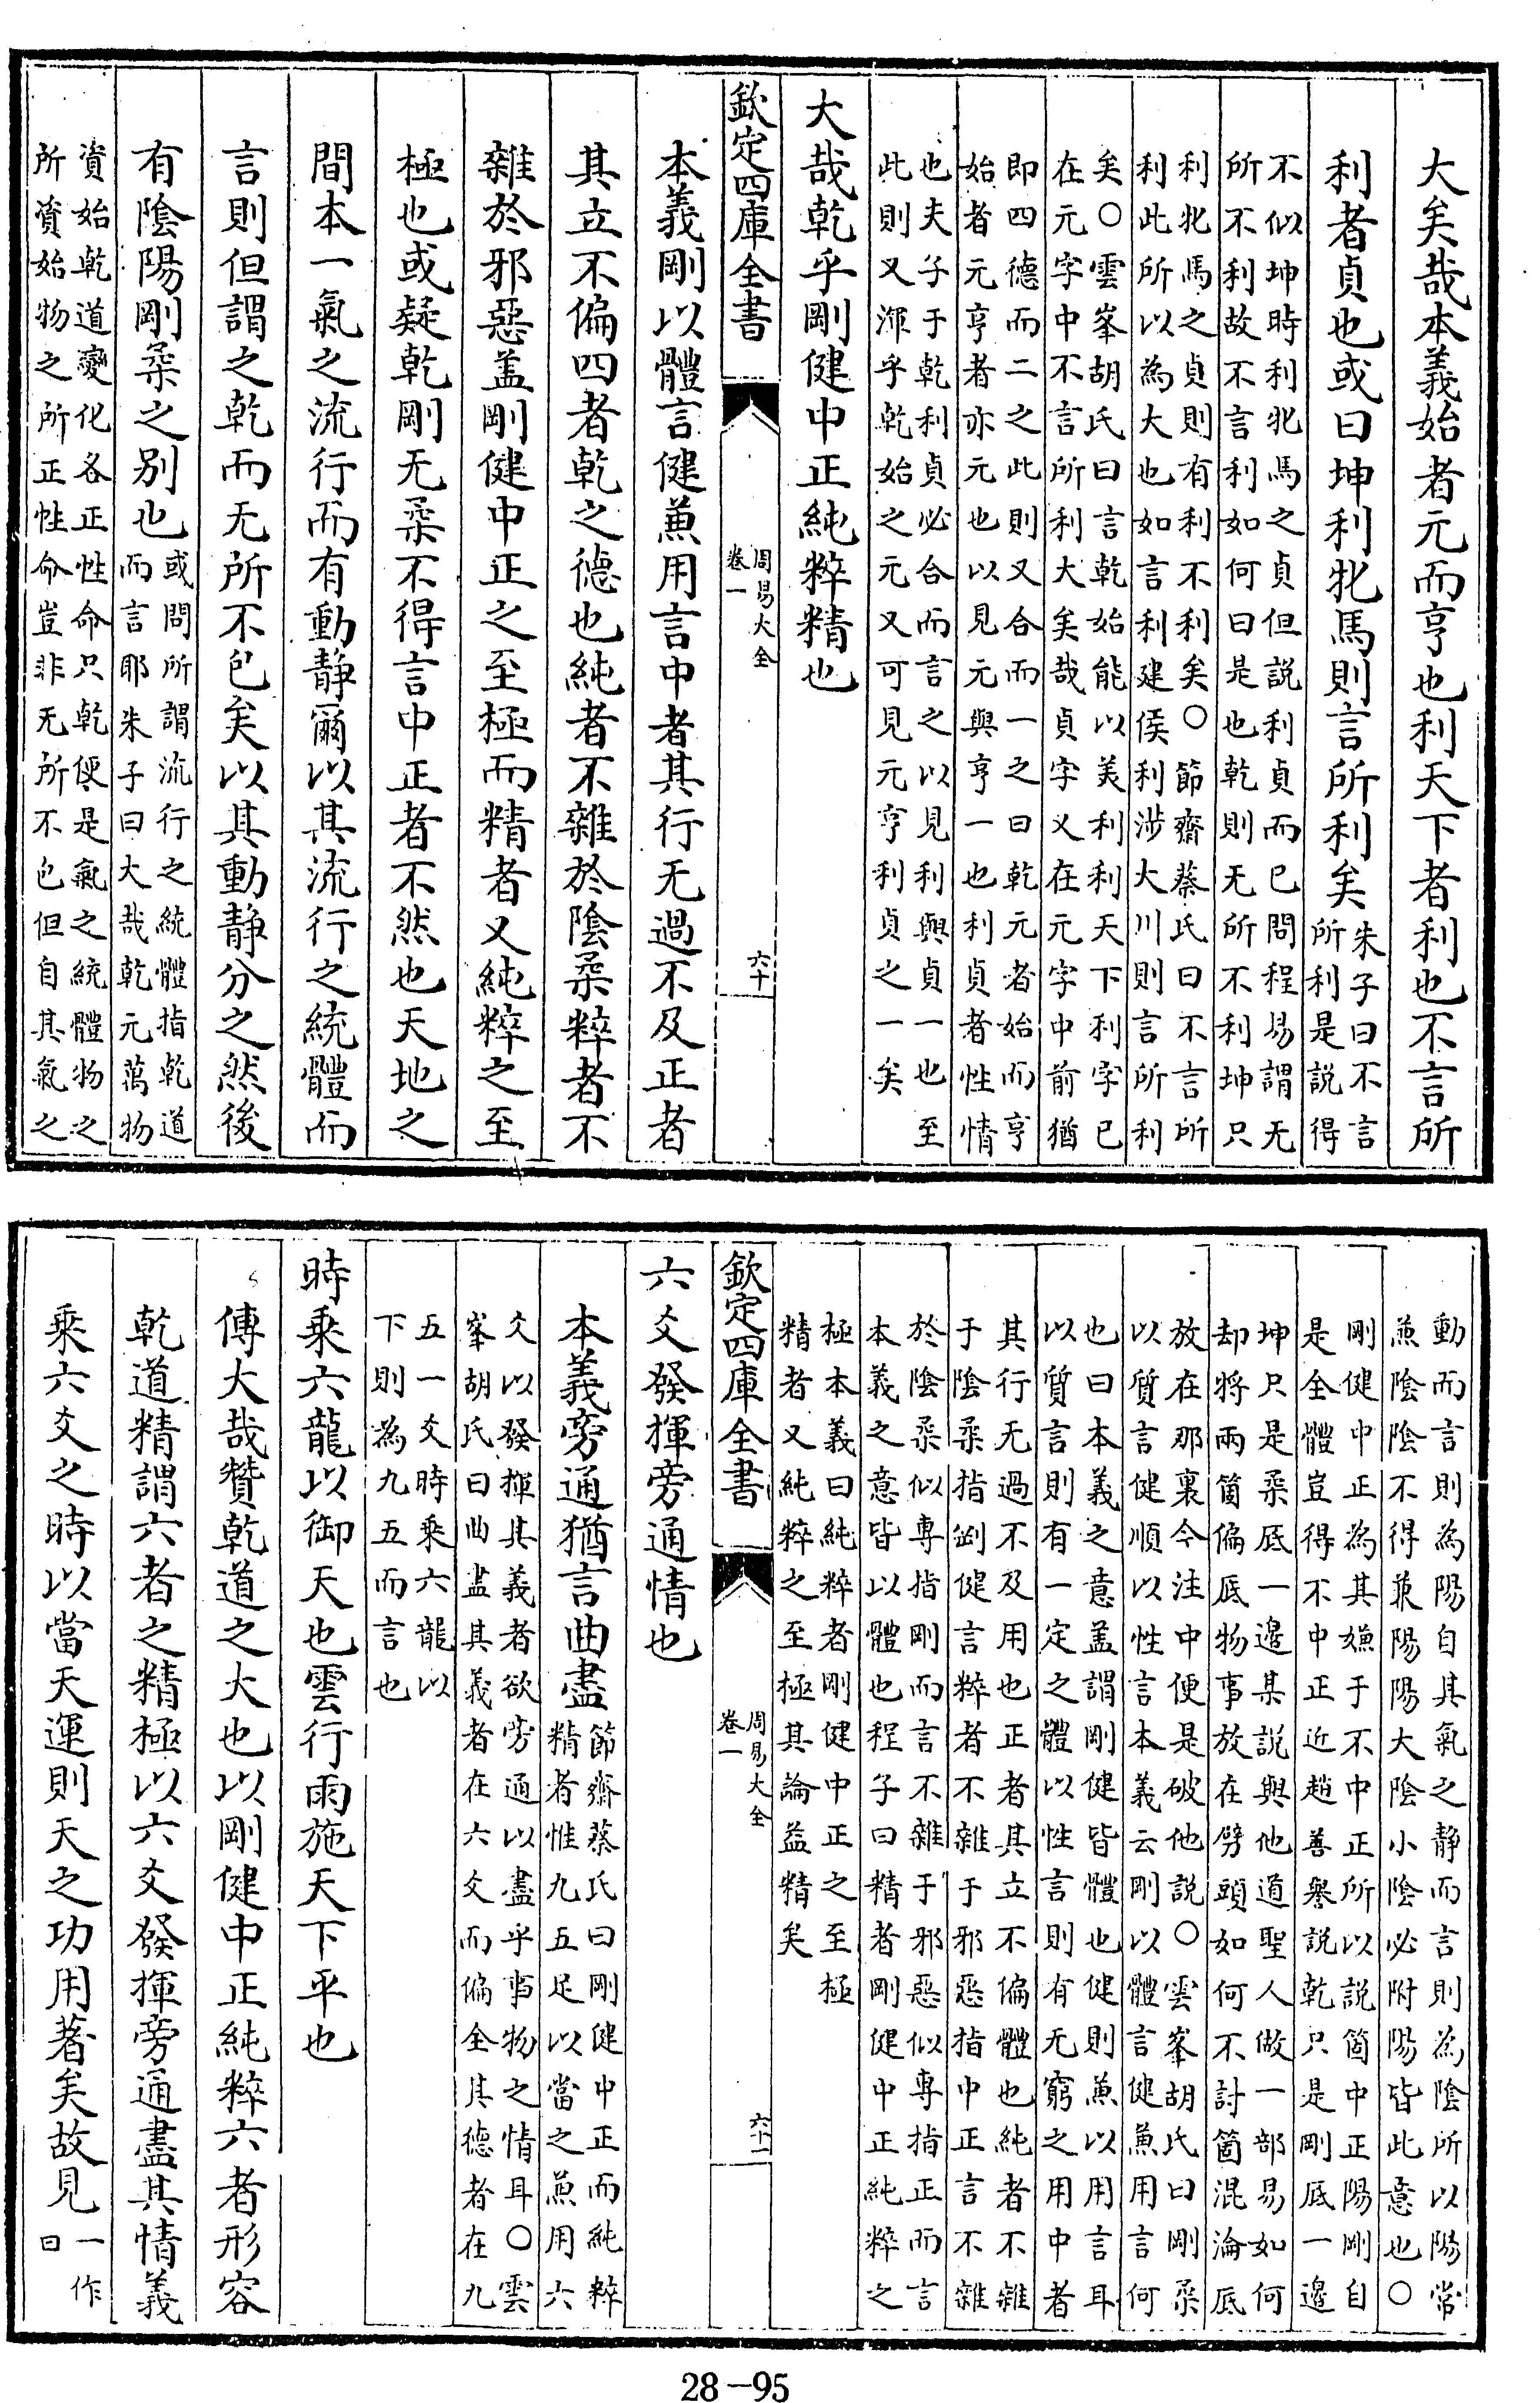 大矣哉本義始者元而亨也利天下者利也不言所
利者貞也或曰坤利牝馬則言所利矣
朱子曰不言
所利是説得
不似坤時利牝馬之貞但説利貞而已問程易謂无
所不利故不言利如何曰是也乾則无所不利坤只
利牝馬之貞則有利不利矣○節齋蔡氏曰不言所
利此所以為大也如言利建侯利涉大川則言所利
矣○雲峯胡氏曰言乾始能以美利利天下利字已
在元字中不言所利大矣哉貞字又在元字中前猶
即四德而二之此則又合而一之曰乾元者始而亨
始者元亨者亦元也以見元與亨一也利貞者性情
也夫子于乾利貞必合而言之以見利與貞一也至
此則又渾乎乾始之元又可見元亨利貞之一矣
大哉乾乎剛健中正純粹精也
欽定四庫全書
周易大全
卷一
六十
本義剛以體言健兼用言中者其行无過不及正者
其立不偏四者乾之德也純者不雜於陰柔粹者不
雜於邪惡盖剛健中正之至極而精者又純粹之至
極也或疑乾剛无柔不得言中正者不然也天地之
間本一氣之流行而有動静爾以其流行之統體而
言則但謂之乾而无所不包矣以其動静分之然後
有陰陽剛柔之别也
或問所謂流行之統體指乾道
而言耶朱子曰大哉乾元萬物
資始乾道變化各正性命只乾便是氣之統體物之
所資始物之所正性命豈非无所不包但自其氣之
動而言則為陽自其氣之静而言則為陰所以陽常
兼陰陰不得兼陽陽大陰小陰必附陽皆此意也○
剛健中正為其嫌于不中正所以説箇中正陽剛自
是全體豈得不中正近趙善譽説乾只是剛底一邊
坤只是柔底一邊某説與他道聖人做一部易如何
却將兩箇偏底物事放在劈頭如何不討箇混淪底
放在那裏今注中便是破他説○雲峯胡氏曰剛柔
以質言健順以性言本義云剛以體言健兼用言何
也曰本義之意盖謂剛健皆體也健則兼以用言耳
以質言則有一定之體以性言則有无窮之用中者
其行无過不及用也正者其立不偏體也純者不雜
于陰柔指剛健言粹者不雜于邪惡指中正言不雜
於陰柔似專指剛而言不雜于邪惡似專指正而言
本義之意皆以體也程子曰精者剛健中正純粹之
極本義曰純粹者剛健中正之至極
精者又純粹之至極其論益精矣
欽定四庫全書
周易大全
卷一
六十一
六爻發揮旁通情也
本義旁通猶言曲盡
節齋蔡氏曰剛健中正而純粹
精者惟九五足以當之兼用六
爻以發揮其義者欲旁通以盡乎事物之情耳○雲
峯胡氏曰曲盡其義者在六爻而偏全其德者在九
五一爻時乘六龍以
下則為九五而言也
時乘六龍以御天也雲行雨施天下平也
傳大哉贊乾道之大也以剛健中正純粹六者形容
乾道精謂六者之精極以六爻發揮旁通盡其情義
乘六爻之時以當天運則天之功用著矣故見
一作
曰
28-95